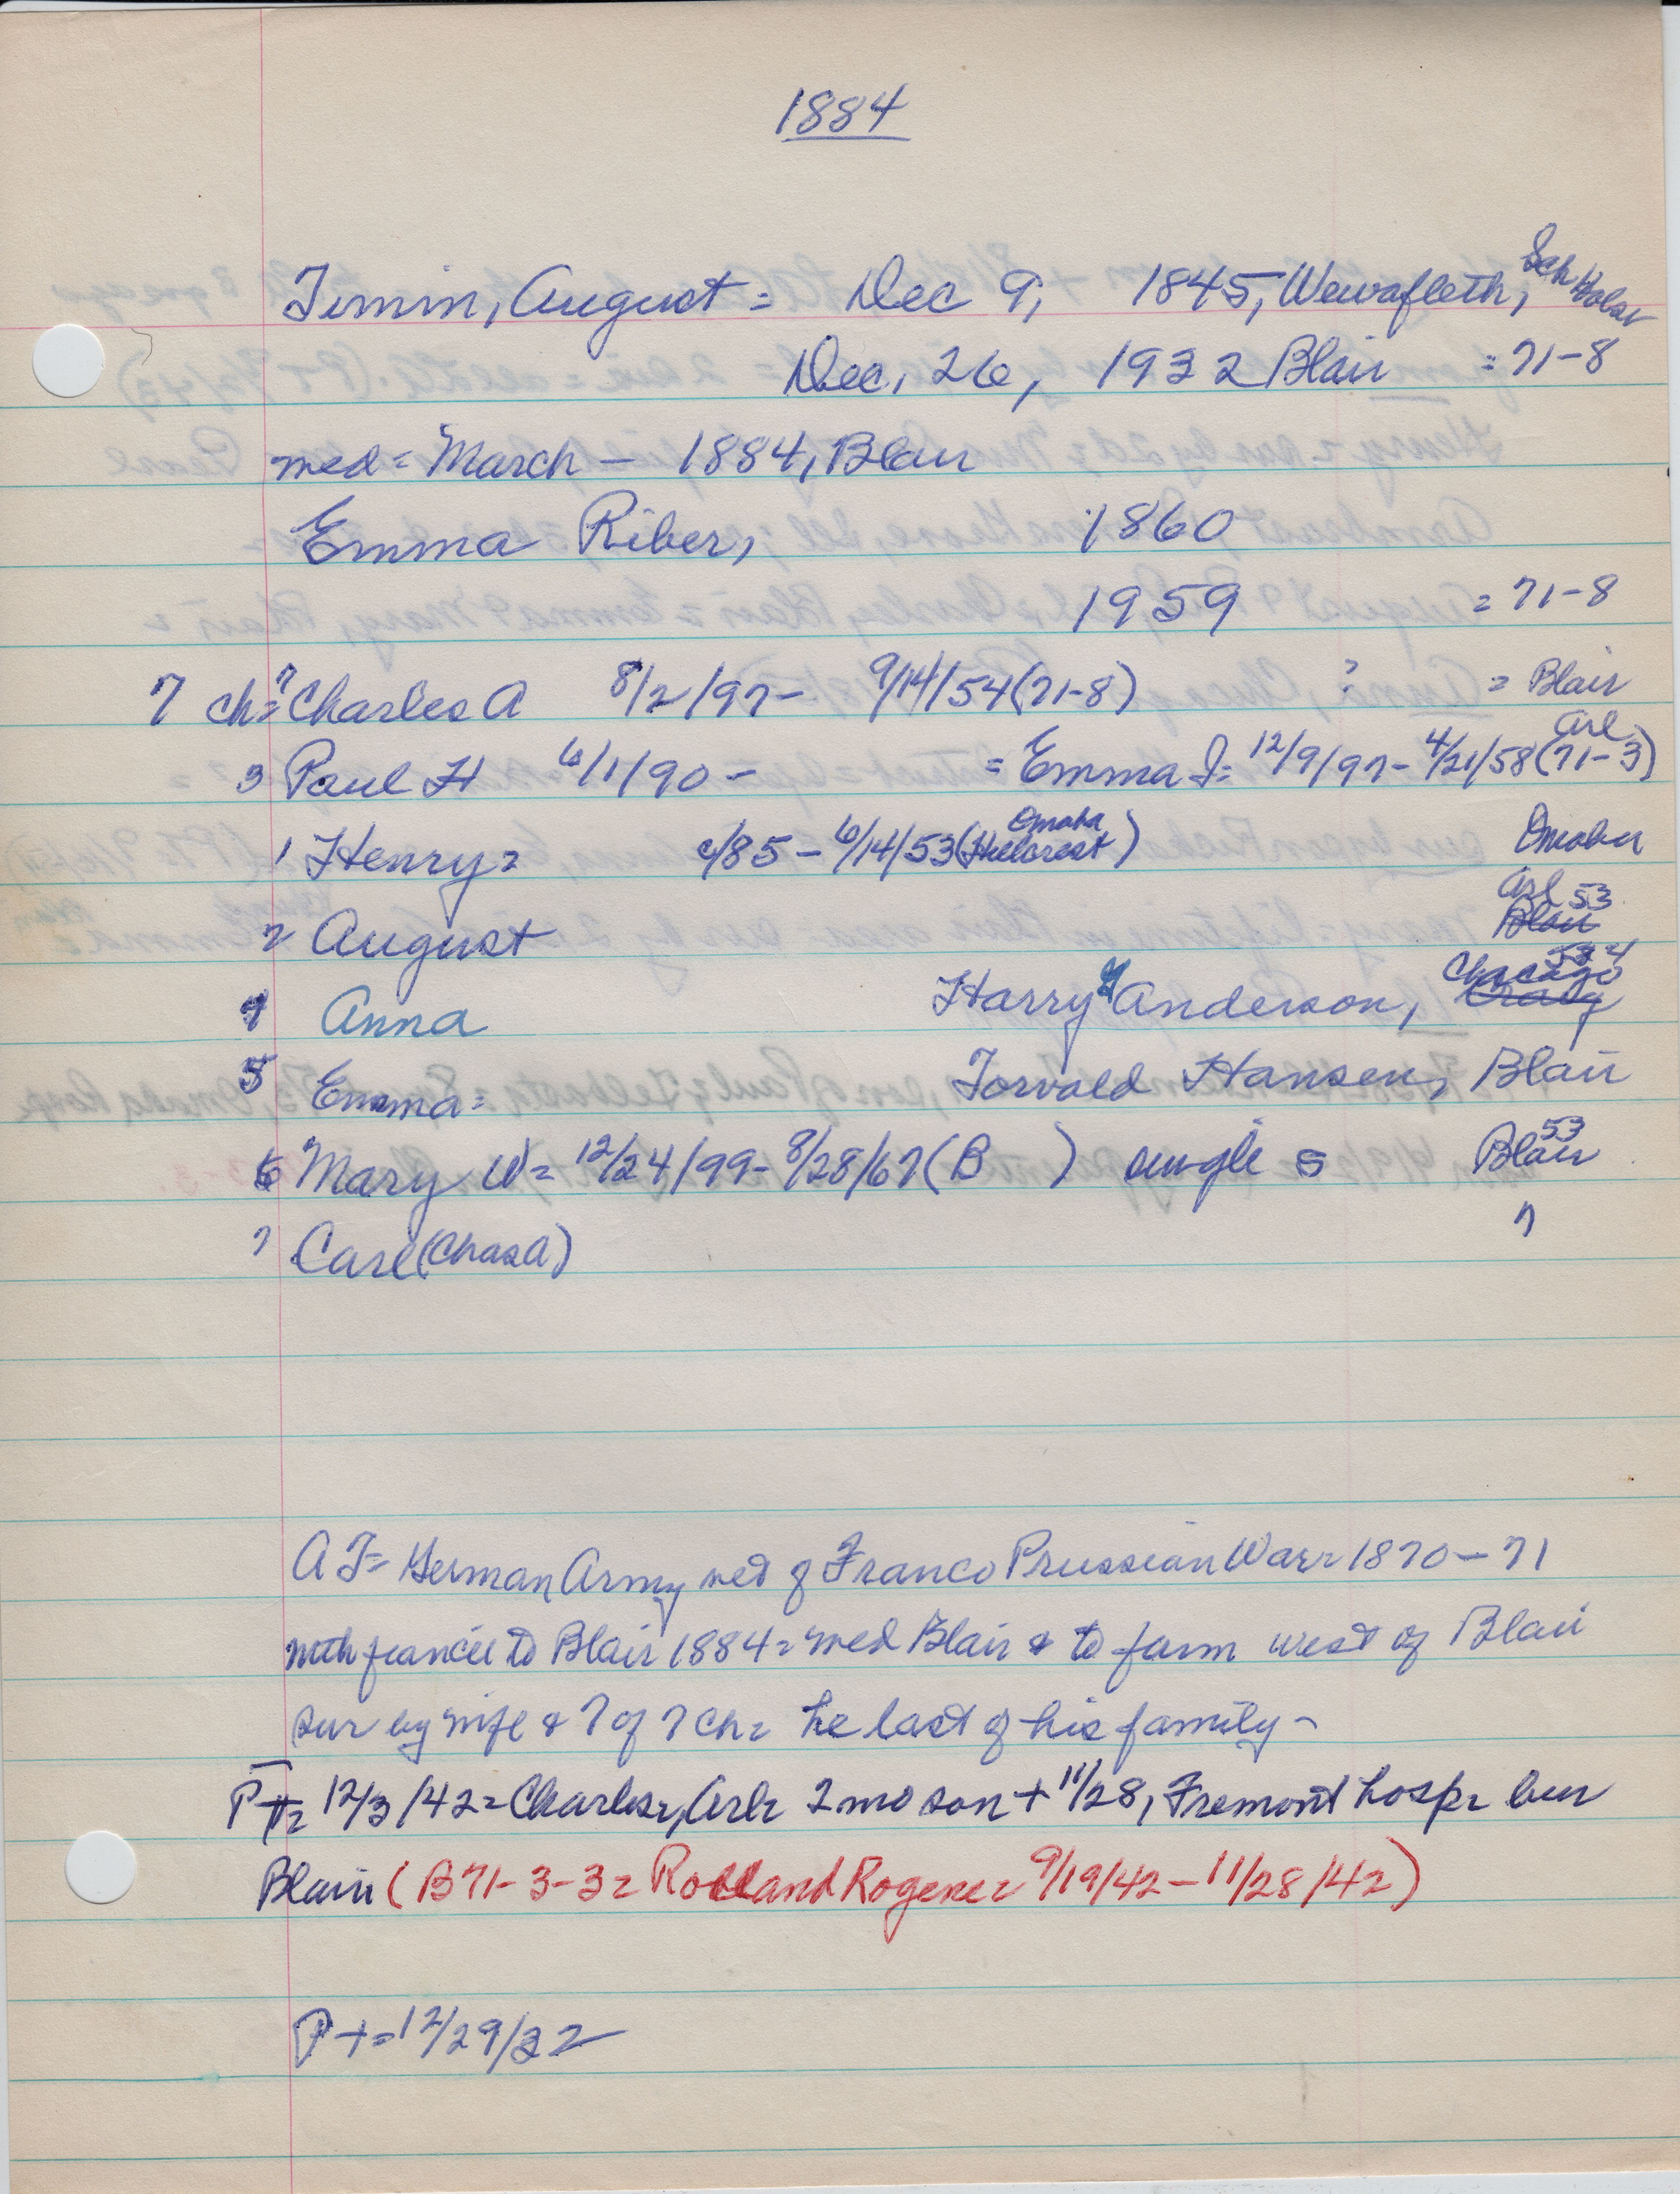 1884
Timm, August = Dec 9, 1845, Wewafleth, Sch Holst
Dec. 26, 1932 Blair = 71-8
med = March - 1884, Blair
Emma Riber, 1860
1959 = 71-8
7 ch = 7 Charles A 8/2/97 - 9/14/54 (71-8) ? = Blair
3 Paul H 6/1/90 - = Emma I = 12/9/97 - 4/21/58 (71-3) Arl
1 Henry = c/85 - 6/14/53 (Omaha Hillcrest) Omaha
2 August Arl 53 Blair
4 Anna Harry Y Anderson, Chicago 53 4 Craig
5 Emma = Torvald Hansen, Blair
6 Mary W = 12/24/99 - 8/28/67 (B ) single s Blair 53
7 Carl (Chas A) 7
A T = German Army vet of Franco Prussian War = 1870-71
with fiancee to Blair 1884 = med Blair & to farm west of Blair
sur by wife & 7 of 7 ch = he last of his family -
P T = 12/3/42 = Charles, Arl = 2 mo son + 11/28, Fremont hosp = bur
Blair (B 71-3-3 = Rolland Rogene = 9/19/42 - 11/28/42)
P + = 12/29/32